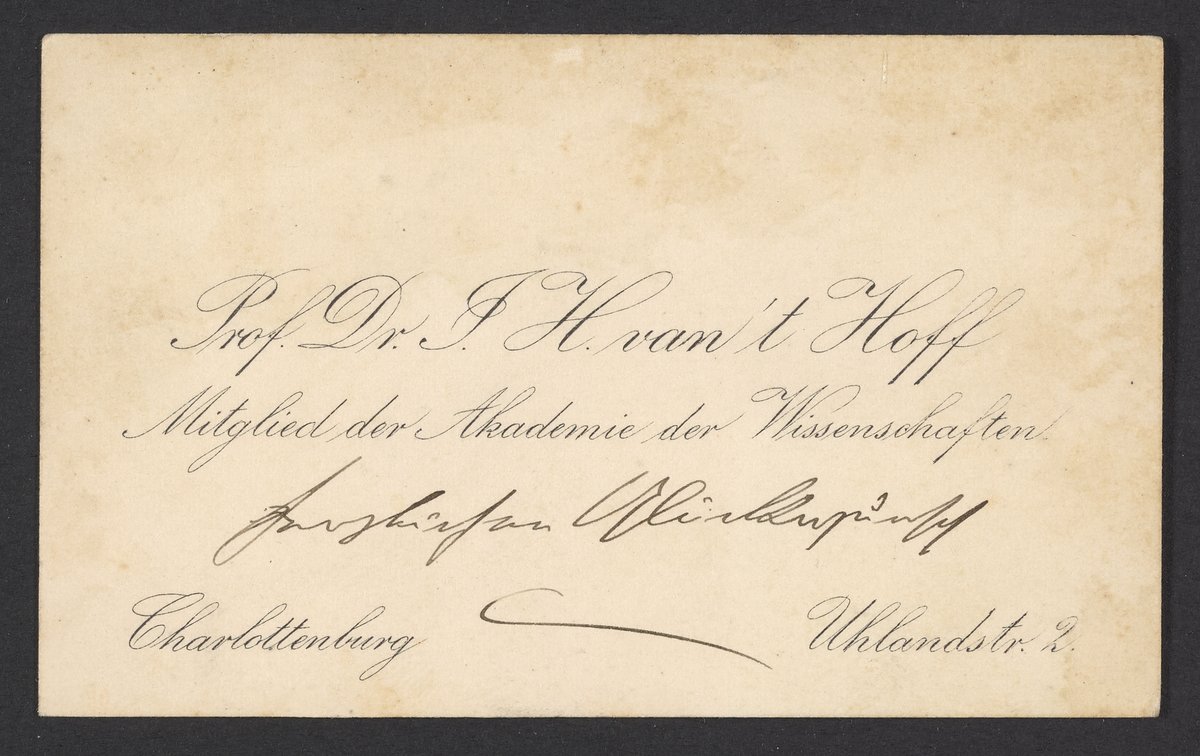 Prof. Dr. J. H. van 't Hoff
Mitglied der Akademie der Wissenschaften.
herzlichen Glückwunsch
Charlottenburg Uhlandstr. 2.